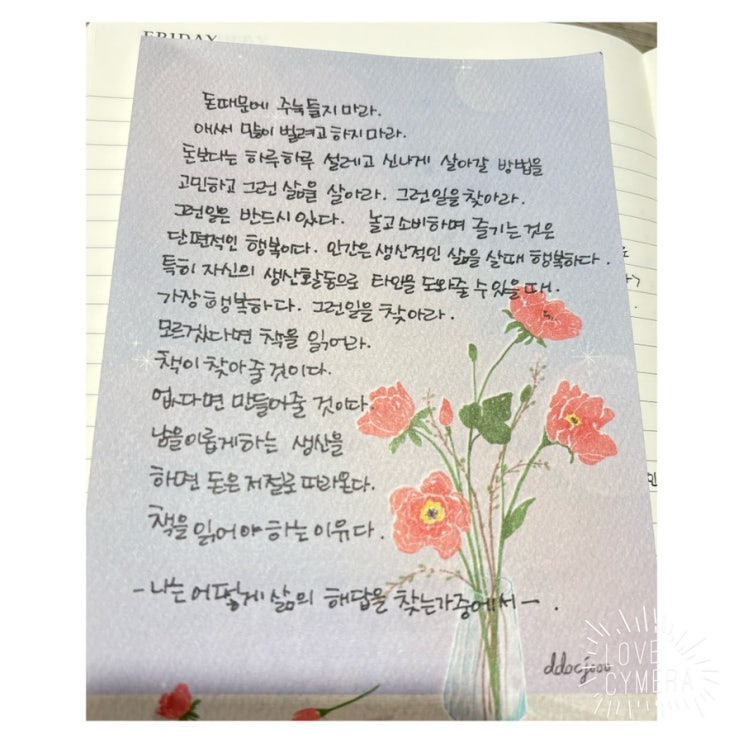 FRIDAY
돈때문에 주눅들지마라.
애써 많이 벌려고 하지마라.
돈보다는 하루하루 설레고 신나게 살아갈 방법을
고민하고 그런 삶을 살아라. 그런일을 찾아라.
그런일은 반드시 있다. 놀고 소비하며 즐기는 것은
단편적인 행복이다. 인간은 생산적인 삶을 살때 행복하다.
특히 자신의 생산활동으로 타인을 도와줄 수 있을 때.
가장 행복하다. 그런일을 찾아라.
모르겠다면 책을 읽어라.
책이 찾아줄것이다.
없다면 만들어줄 것이다.
남을이롭게하는 생산을
하면 돈은 저절로 따라온다.
책을 읽어야 하는 이유다.
-나는 어떻게 삶의 해답을 찾는가중에서-.
LOVE
CYMERA